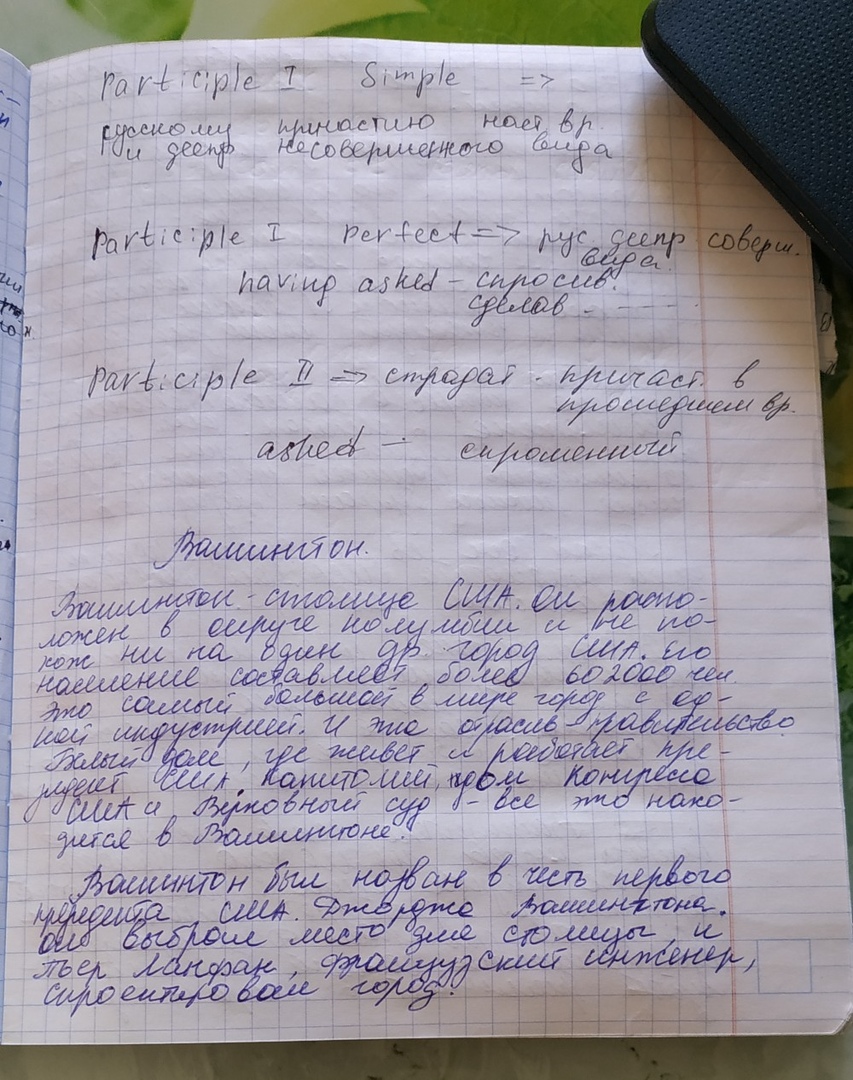 Participle I Simple =>
русскому причастию наст вр.
и деепр несовершенного вида
Participle I Perfect => рус деепр соверш.
вида
having asked - спросив.
сделав
Participle II => страдат. причаст. в
прошедшем вр.
asked - спрошенный
Вашингтон.
Вашингтон - столица США. Он распо-
ложен в округе Колумбии и не по-
хож ни на один др. город США. Его
население составляет более 602000 чел.
Это самый большой в мире город с од-
ной индустрией. И эта отрасль - правительство
Белый дом, где живет и работает пре-
зидент США, Капитолий, дом конгресса
США и Верховный суд - все это нахо-
дится в Вашингтоне.
Вашингтон был назван в честь первого
президента США Джорджа Вашингтона.
Он выбрал место для столицы, и
Пьер Ланфан, французский инженер,
спроектировал город.